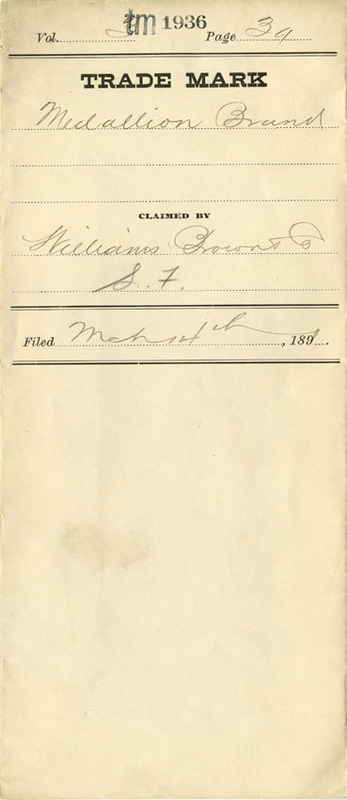 Vol. 3 tm 1936 Page 39
TRADE MARK
Medallion Brand
CLAIMED BY
Williams Brown & Co
S. F.
Filed Mch 14th, 189